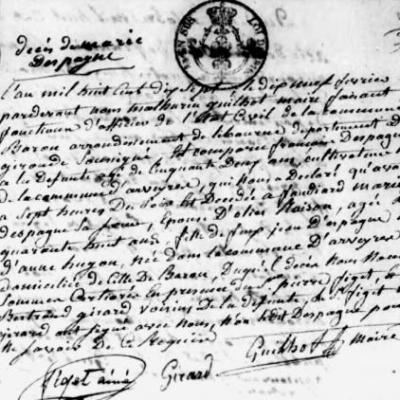 décès de marie
Despagne
L'an mil huit cent dix sept le dix neuf fevrier
pardevant nous mathurin guilhot maire faisant
fonctions d'officier de l'état Civil de la commune
Baron arrondissement de libourne departement de
gironde soussigné est comparu françois Despagne
de la Defunte agé de Cinquante Deux ans cultivateur
de la commune d'arveyres, qui Nous a Declaré qu'avant
a sept heures Du Soir est Decedée a marie
despagne sa femme, Epouse D'elie Raison, agée De
quarante huit ans, fille de feu jean D'espagne
d'anne hugon, née dans la commune D'arveyres
domiciliée de Celle De Baron, Duquel décès Nous Nous
Sommes Certiorés En presence de Sr pierre figet, et
Bertrand girard voisins De la defunte, figet et
girard ont signé avec nous, non ledit Despagne pour
ne savoir De Ce Requis
Figet ainé Girard Guilhot maire